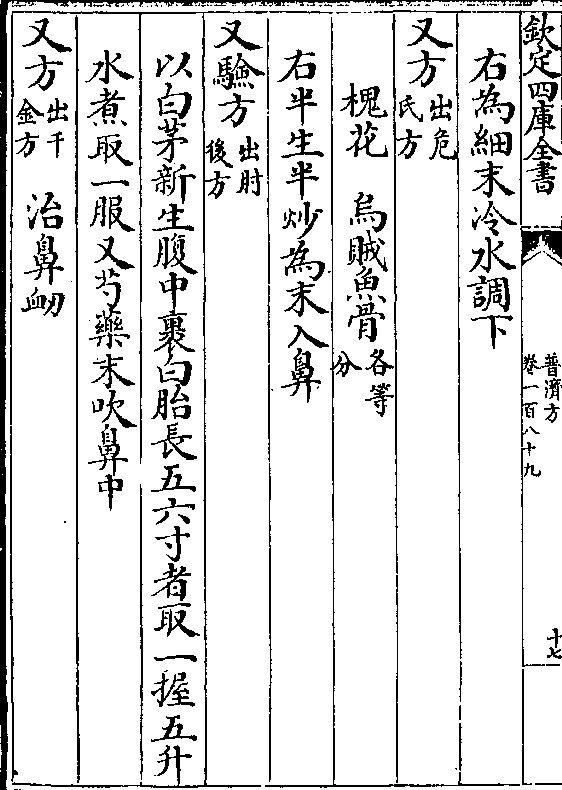 欽定四庫全書
普濟方
卷一百八十九
十七
右為細末冷水調下
又方出危氏方
槐花　烏賊魚骨各等分
右半生半炒為末入鼻
又驗方出肘後方
以白茅新生腹中裹白胎長五六寸者取一握五升
水煮取一服又芍藥末吹鼻中
又方出千金方　治鼻衂